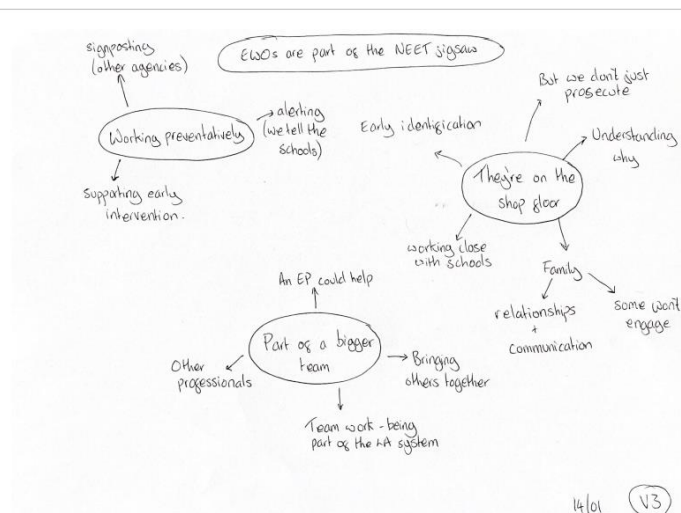 EWOs are part of the NEET jigsaw
signposting
(other agencies)
Working preventatively
alerting
(we tell the
schools)
Supporting early
intervention.
But we don't just
prosecute
Early identification
Understanding
why
They're on the
shop floor
working close
with schools
Family
relationships
+
communication
some won't
engage
An EP could help
Part of a bigger
team
Other
professionals
Bringing
others together
Team work - being
part of the LA system
14/01
V3